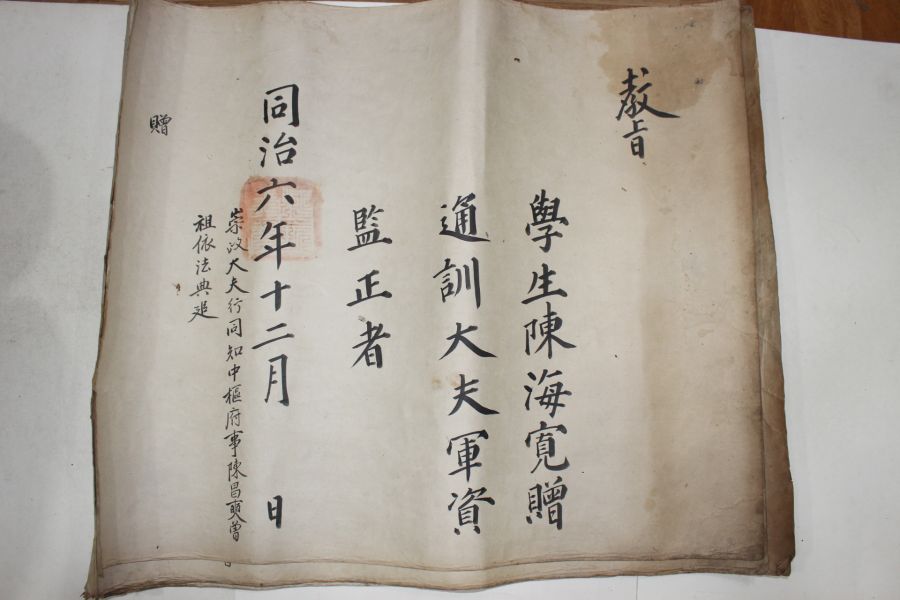 敎旨
學生陳海寬贈
通訓大夫軍資
監正者
同治六年十二月 日
崇政大夫行同知中樞府事陳昌奭曾
祖依法典追
贈